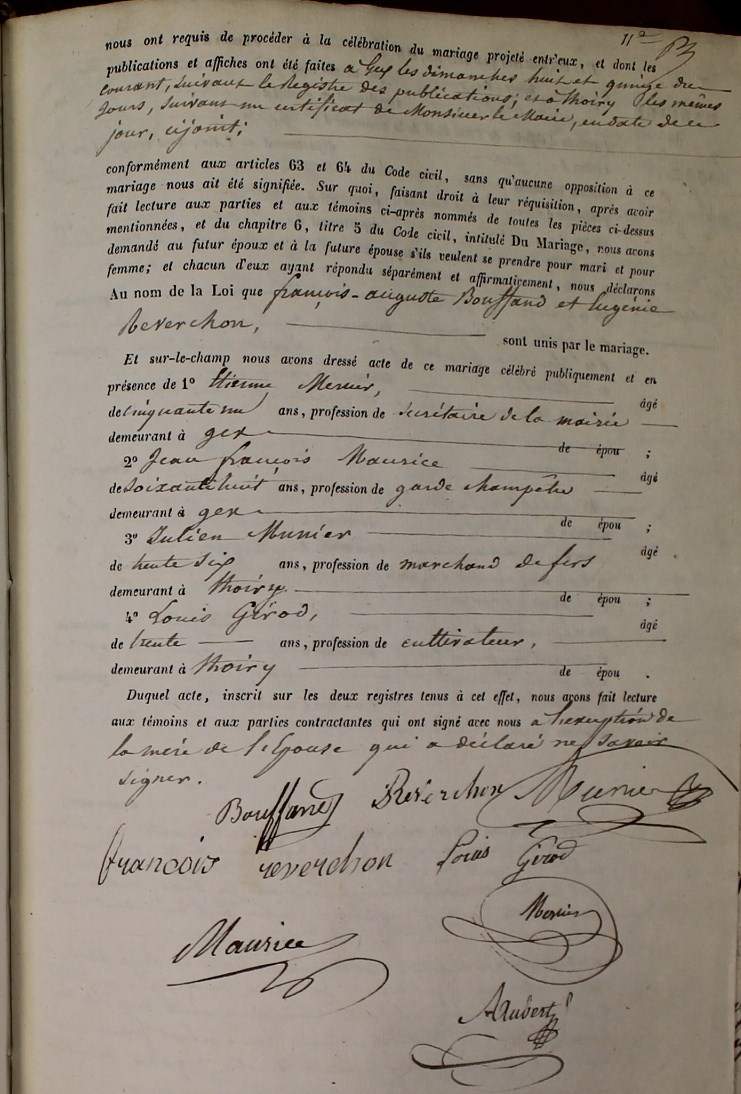 nous ont requis de procéder à la célébration du mariage projeté entr'eux, et dont les
publications et affiches ont été faites à Gex les dimanches huit et quinze du
courant, suivant le Registre des publications; et à Thoiry les mêmes
jours, suivant un certificat de Monsieur le Maire, en date de ce
jour, ci joint;
conformément aux articles 63 et 64 du Code civil, sans qu'aucune opposition à ce
mariage nous ait été signifiée. Sur quoi, faisant droit à leur réquisition, après avoir
fait lecture aux parties et aux témoins ci-après nommés de toutes les pièces ci-dessus
mentionnées, et du chapitre 6, titre 5 du Code civil, intitulé Du Mariage, nous avons
demandé au futur époux et à la future épouse s'ils veulent se prendre pour mari et pour
femme; et chacun d'eux ayant répondu séparément et affirmativement, nous déclarons
Au nom de la Loi que françois-auguste Bouffand et Eugénie
Reverchon,
sont unis par le mariage.
Et sur-le-champ nous avons dressé acte de ce mariage célébré publiquement et en
présence de 1º Etienne Mercier, âgé
de cinquante un ans, profession de secrétaire de la mairie
demeurant à gex de épou ;
2º Jean françois Maurice âgé
de soixante huit ans, profession de garde champêtre
demeurant à gex de épou ;
3º Julien Munier âgé
de trente six ans, profession de marchand de fers
demeurant à Thoiry. de épou ;
4º Louis Girod, âgé
de trente ans, profession de cultivateur,
demeurant à Thoiry de épou .
Duquel acte, inscrit sur les deux registres tenus à cet effet, nous avons fait lecture
aux témoins et aux parties contractantes qui ont signé avec nous a l'exception de
la mère de l'Epouse qui a déclaré ne savoir
signer.
Bouffand Reverchon Munier
françois reverchon Louis Girod
Mercier
Maurice
Aubert